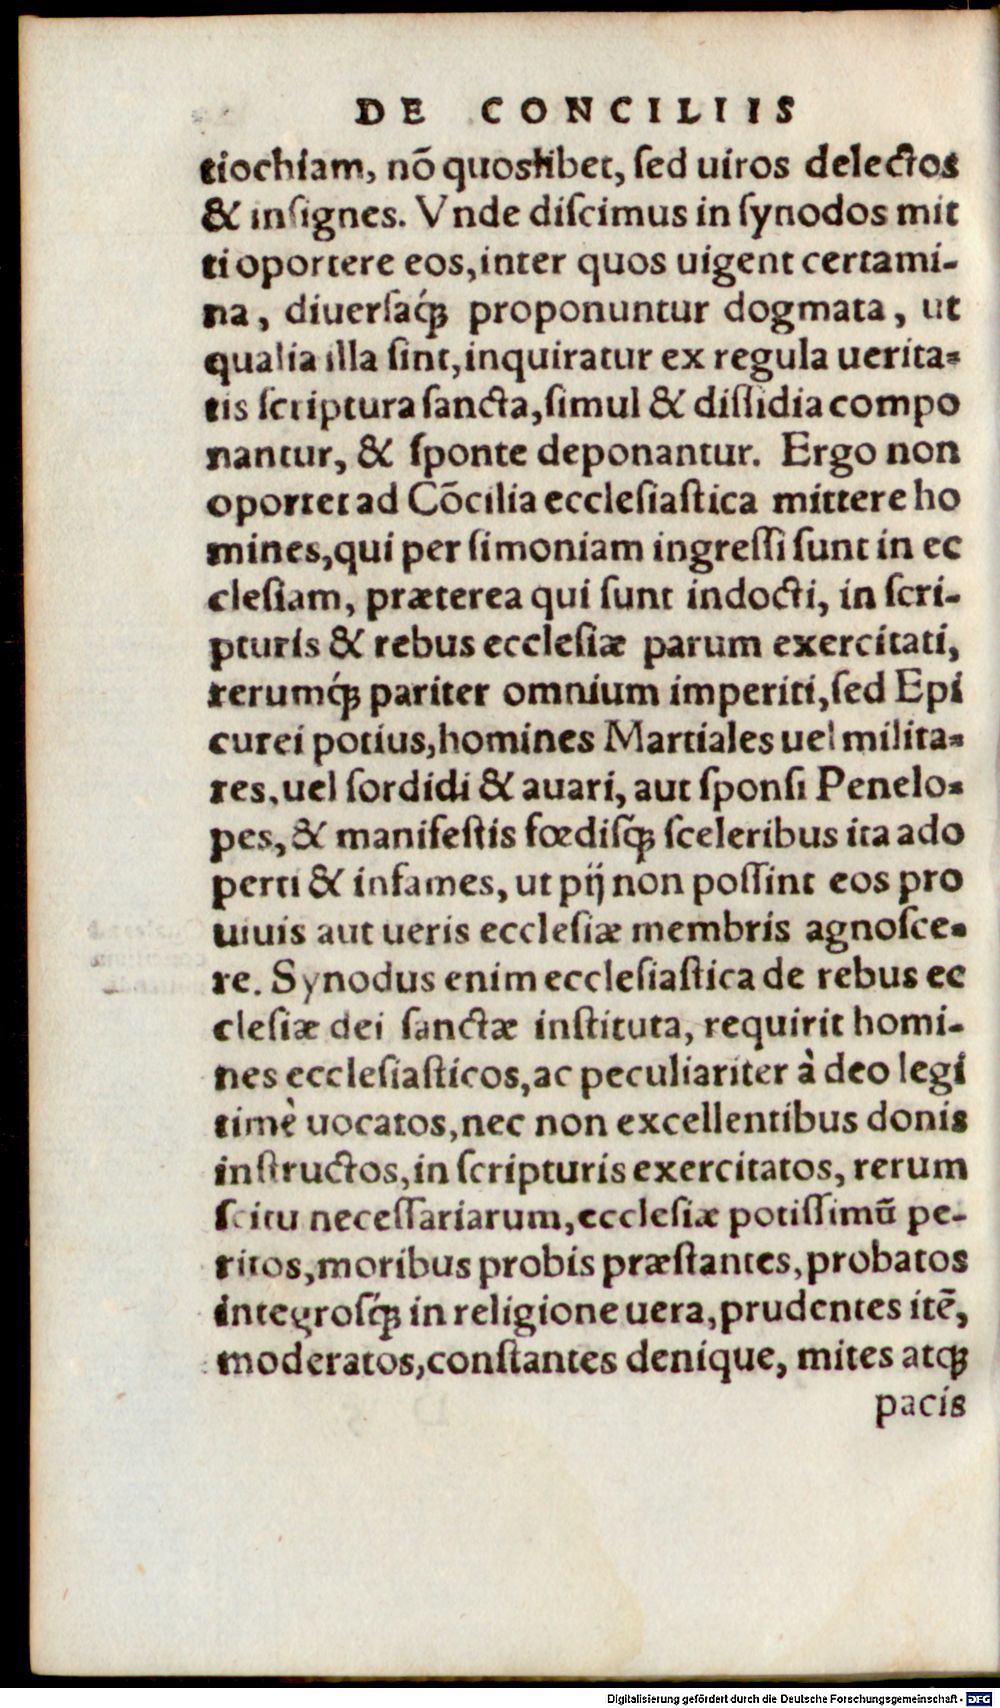 DE CONCILIIS
tiochiam, nō quoslibet, ſed uiros delectos
& inſignes. Vnde diſcimus in ſynodos mit
ti oportere eos, inter quos uigent certami-
na, diuerſaq́ꝫ proponuntur dogmata, ut
qualia illa ſint, inquiratur ex regula uerita-
tis ſcriptura ſancta, ſimul & diſſidia compo
nantur, & ſponte deponantur. Ergo non
oportet ad Cōcilia eccleſiaſtica mittere ho
mines, qui per ſimoniam ingreſſi ſunt in ec
cleſiam, præterea qui ſunt indocti, in ſcri-
pturis & rebus eccleſiæ parum exercitati,
rerumq́ꝫ pariter omnium imperiti, ſed Epi
curei potius, homines Martiales uel milita-
res, uel ſordidi & auari, aut ſponſi Penelo-
pes, & manifeſtis fœdiſq́ꝫ ſceleribus ita ado
perti & infames, ut pij non poſſint eos pro
uiuis aut ueris eccleſiæ membris agnoſce-
re. Synodus enim eccleſiaſtica de rebus ec
cleſiæ dei ſanctæ inſtituta, requirit homi-
nes eccleſiaſticos, ac peculiariter à deo legi
timè uocatos, nec non excellentibus donis
inſtructos, in ſcripturis exercitatos, rerum
ſcitu neceſſariarum, eccleſiæ potiſſimū pe-
ritos, moribus probis præſtantes, probatos
integroſq́ꝫ in religione uera, prudentes itē,
moderatos, conſtantes denique, mites atqꝫ
pacis
Digitalisierung gefördert durch die Deutsche Forschungsgemeinschaft - DFG